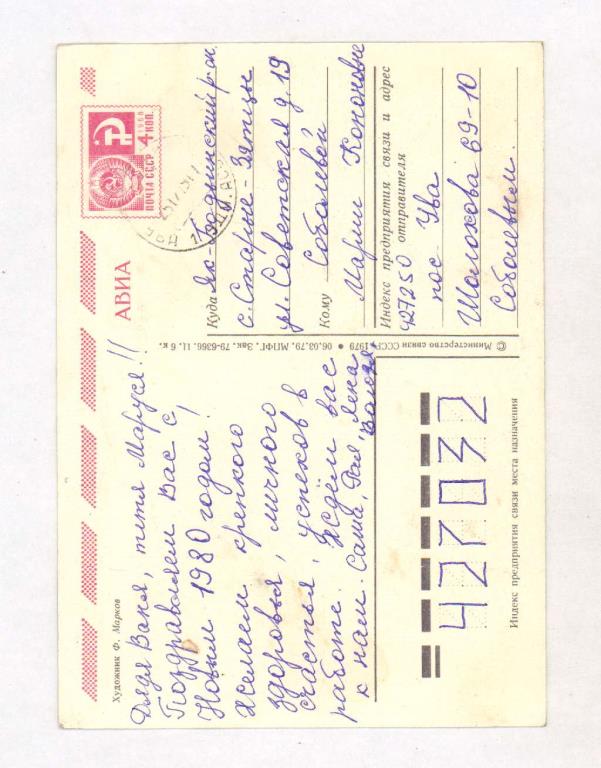 Художник Ф. Марков
Дядя Ваня, тетя Маруся!!
Поздравляем Вас с
Новым 1980 годом!
Желаем крепкого
здоровья, личного
счастья, успехов в
работе. Ждём вас
к нам. Саша, Фая, Лена,
Валюза.
АВИА
ПОЧТА СССР
1966
4 КОП.
Куда Як-Бодьинский р-он
с. Старые-Зятцы
ул. Советская д. 19
Кому Соболевой
Марии Кононовне
Индекс предприятия связи и адрес
отправителя
427250 пос. Ува
Шолохова 69-10
Соболевым.
© Министерство связи СССР, 1979 • 06.03.79. МПФГ. Зак. 79-6366. 11. 6 к.
427032
Индекс предприятия связи места назначения